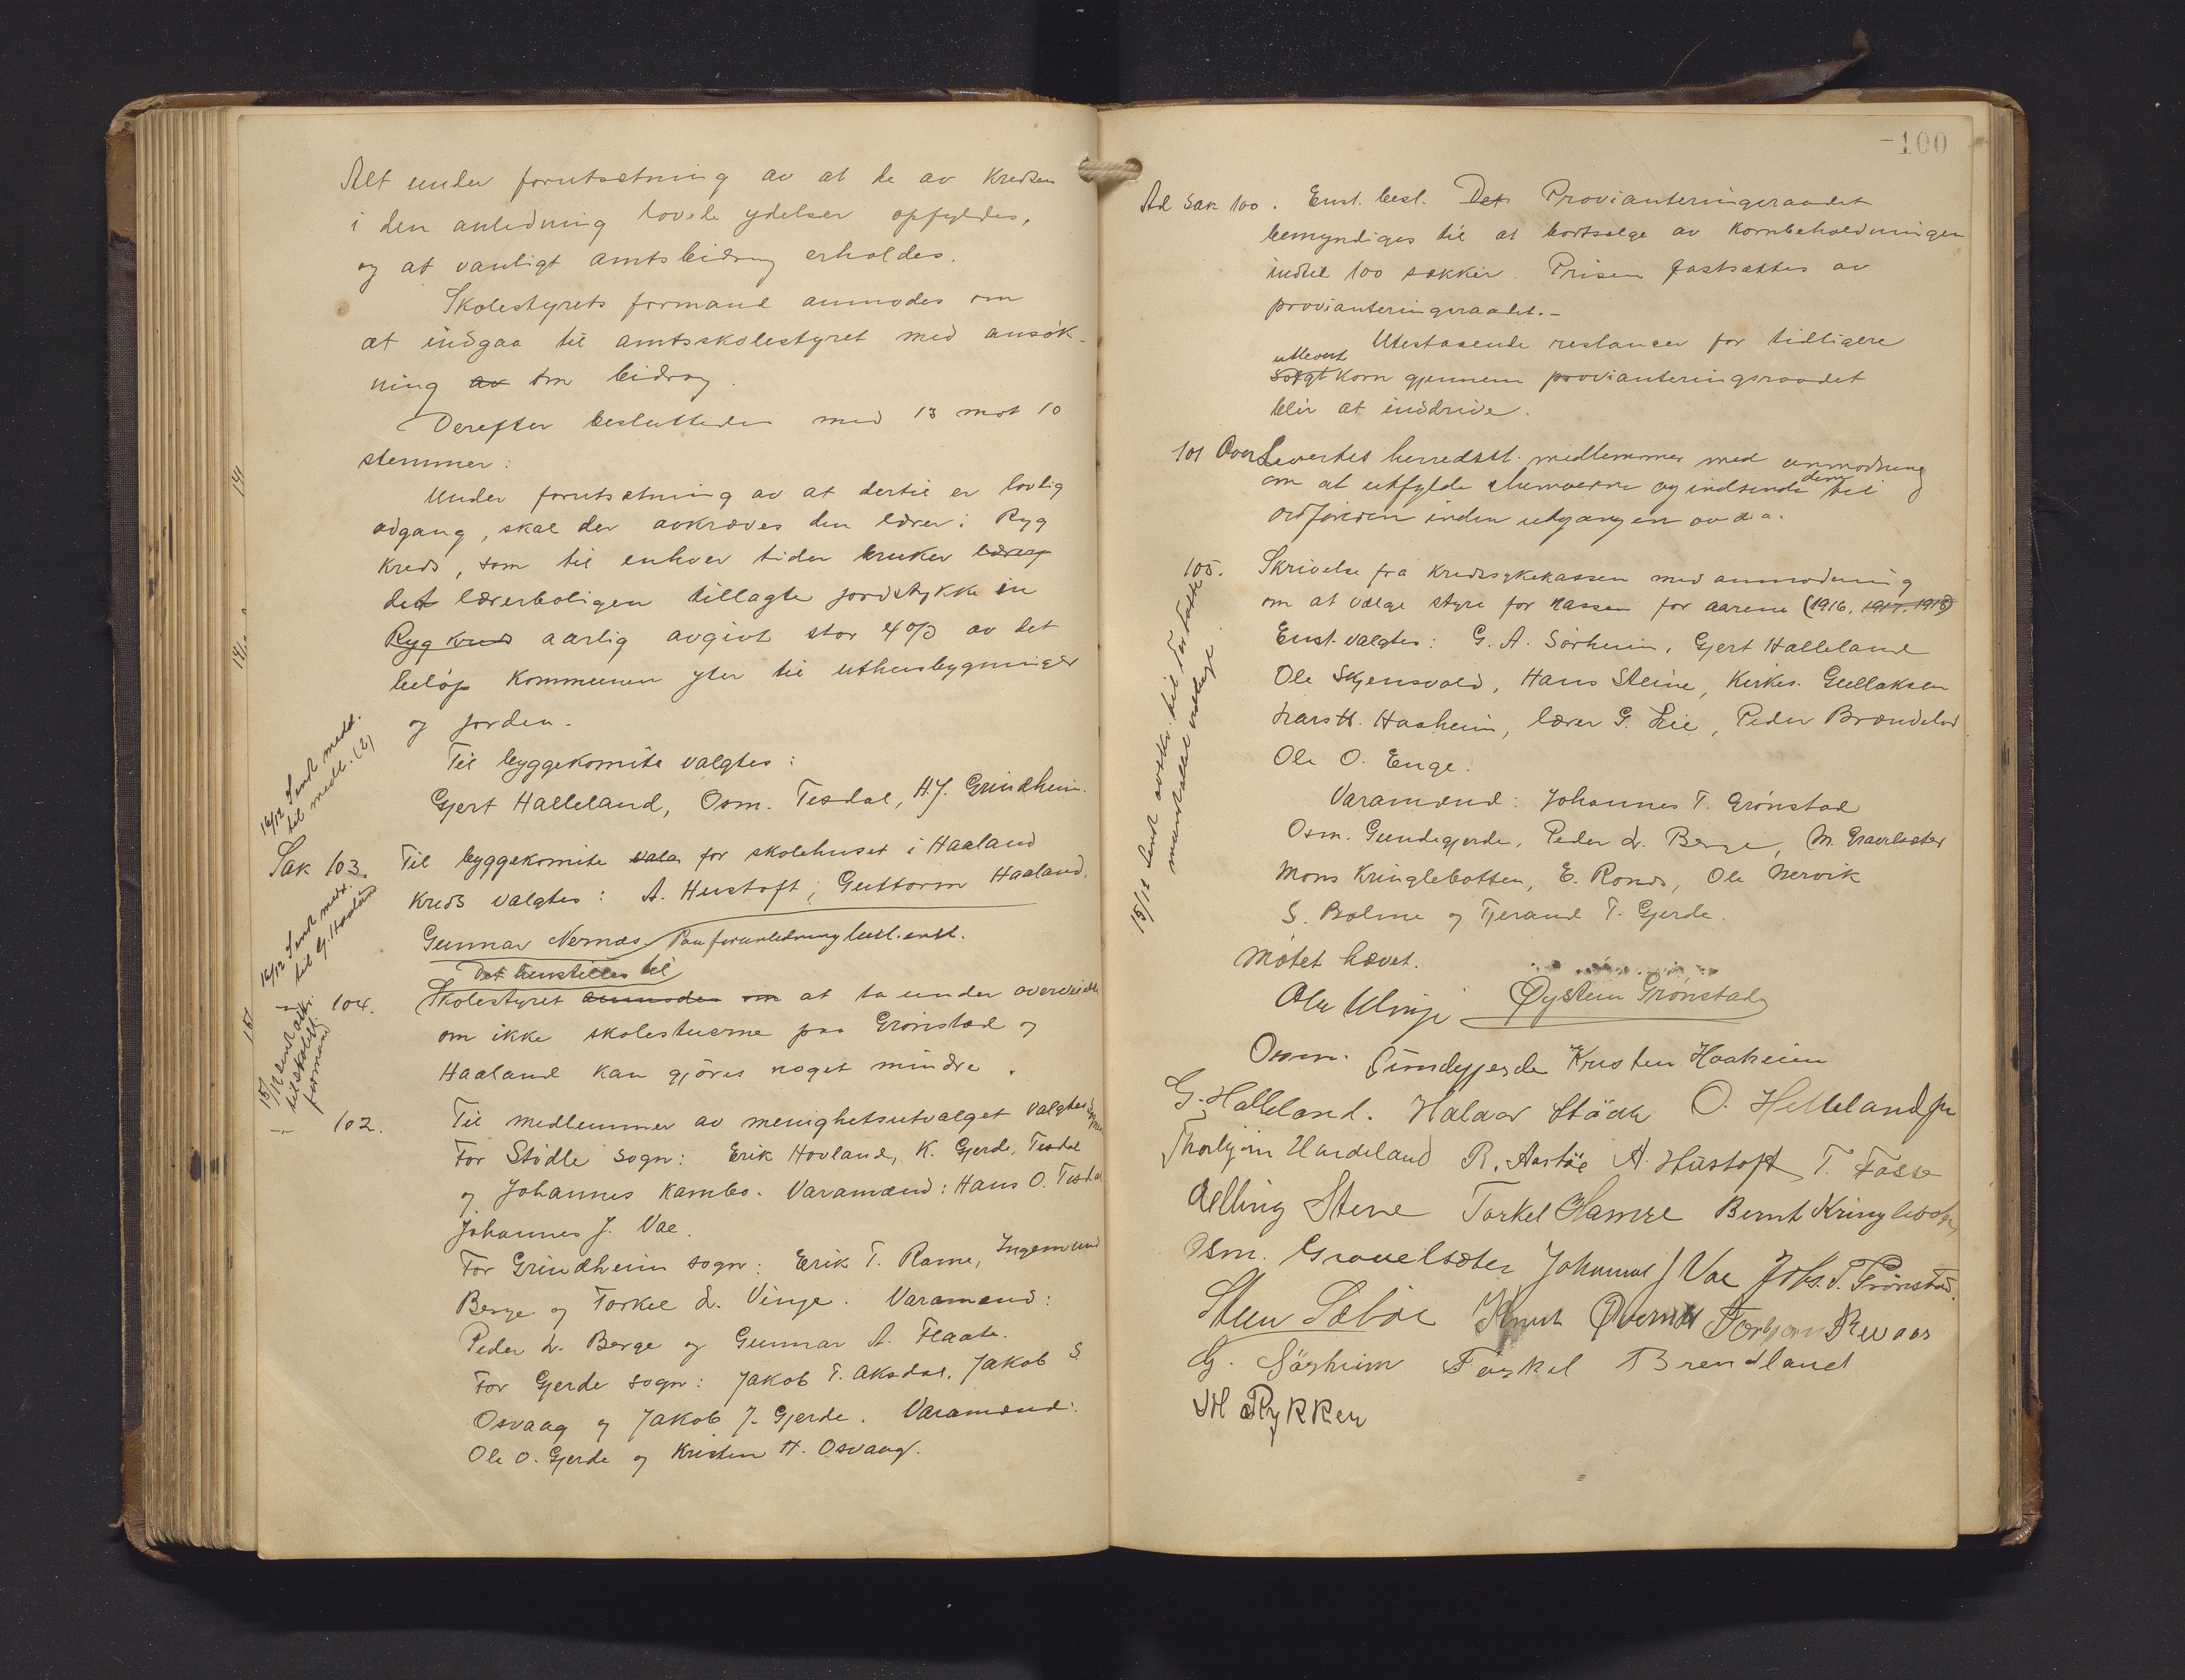 Alt under forutsætning av at de av kredsen
i den anledning lovede ydelser opfyldes,
og at vanligt amtsbidrag erholdes.
Skolestyrets formand anmodes om
at indgaa til amtsskolestyret med ansøk-
ning av om bidrag.
Derefter besluttedes med 13 mot 10
stemmer:
Under forutsætning av at dertil er lovlig
adgang, skal der avkræves den lærer i Ryg
kreds, som til enhver tider bruker
det lærerboligen tillagte jordstykke in
Ryg kreds aarlig avgivt stor 4 % av det
beløp kommunen yter til uthusbygninger
og jorden.
16/12 Sendt medd.
til medl. (2)
Til byggekomite valgtes:
Gjert Halleland, Osm. Tesdal, H.J. Grindheim.
Sak 103. Til byggekomite valg for skolehuset i Haaland
kreds valgtes: A. Hustoft, Guttorm Haaland,
16/12 Sendt medd.
til G. Haaland
Gunnar Nernæs. Paa foranledning besl. enst.
Det henstilles til
" 104. Skolestyret anmodes om at ta under overveielse
om ikke skolestuerne paa Grønstad og
Haaland kan gjøres noget mindre.
15/12 sendt avskr.
til skolest.
formand
" 102. Til medlemmer av menighetsutvalget valgtes
For Stødle sogn: Erik Hovland, K. Gjerde, Tesdal
og Johannes Kambo. Varamænd: Hans O. Tesdal
Johannes J. Vae.
For Grindheim sogn: Erik T. Rame, Ingemund
Berge og Torkel L. Vinje. Varamænd:
Peder L. Berge og Gunnar A. Flaate.
For Gjerde sogn: Jakob T. Aksdal, Jakob S.
Osvaag og Jakob J. Gjerde. Varamænd:
Ole O. Gjerde og Kristen H. Osvaag.
100
Ad Sak 100. Enst. besl. Det Provianteringsraadet
bemyndiges til at bortselge av kornbeholdningen
indtil 100 sækker. Prisen fastsættes av
provianteringsraadet.-
Utestaaende restancer for tidligere
utlevert
solgt korn gjennem provianteringsraadet
blir at inddrive.
101 Overlevertes herredsst. medlemmer med anmodning
om at utfylde skemaerne og indsende dem til
ordføreren inden utgangen av d.a.
105. Skrivelse fra kredssykekassen med anmodning
om at vælge styre for kassen for aarene (1916, 1917, 1918)
15/12 Sendt avskr. til
Enst. valgtes: G. A. Sørheim, Gjert Halleland
Ole Skjensvold, Hans Steine, Kirkes. Gullaksen
Lars H. Haaheim, lærer G. Lie, Peder Brændeland
Ole O. Enge.
Varamænd: Johannes T. Grønstad
Osm. Gundegjerde, Peder L. Berge, M. Gravelsæter
Mons Kringlebotten, E. Ronds, Ole Nervik
S. Bolme og Tjerand T. Gjerde.
Møtet hævet.
Ole Vinje Øystein Grønstad
Osm. Gundegjerde Kristen Haaheim
G. Halleland. Haldor Stødle O. Helleland jr
Thorbjørn Hardeland R. Aartøe A. Hustoft T. Fosse
Elling Stene Torkel Hamre Bernt Kringlebotn
Osm. Gravelsæter Johannes J Vae Johs. T. Grønstad.
Sten Sæbøe Knut Øvernes Torbjørn Revaas
G. Sørheim Torkel Brendland
M Rykken